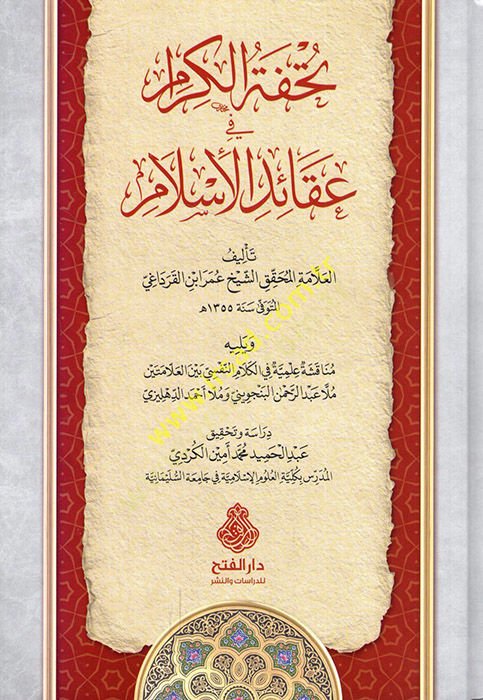 تُحْفَةُ الكِرَامِ
فِي
عَقَائِدِ الإِسْلَامِ
تَأْلِيفُ
العَلَّامَةِ المُحَقِّقِ الشَّيْخِ عُمَرَ ابْنِ القَرَدَاغِيّ
المُتَوَفَّى سَنَةَ ١٣٥٥هـ
وَيَلِيهِ
مُنَاقَشَةٌ عِلْمِيَّةٌ فِي الكَلَامِ النَّفْسِيِّ بَيْنَ العَلَّامَتَيْنِ
مُلَّا عَبْدِ الرَّحْمٰنِ البَنْجُوِينِيِّ وَمُلَّا أَحْمَدَ الدِّهْلِيزِيّ
دِرَاسَة وَتَحْقِيق
عَبْد الحَمِيد مُحَمَّد أَمِين الكُرْدِيّ
المُدَرِّس بِكُلِّيَّةِ العُلُومِ الإِسْلَامِيَّةِ فِي جَامِعَةِ السُّلَيْمَانِيَّة
دار الفتح
للدراسات والنشر